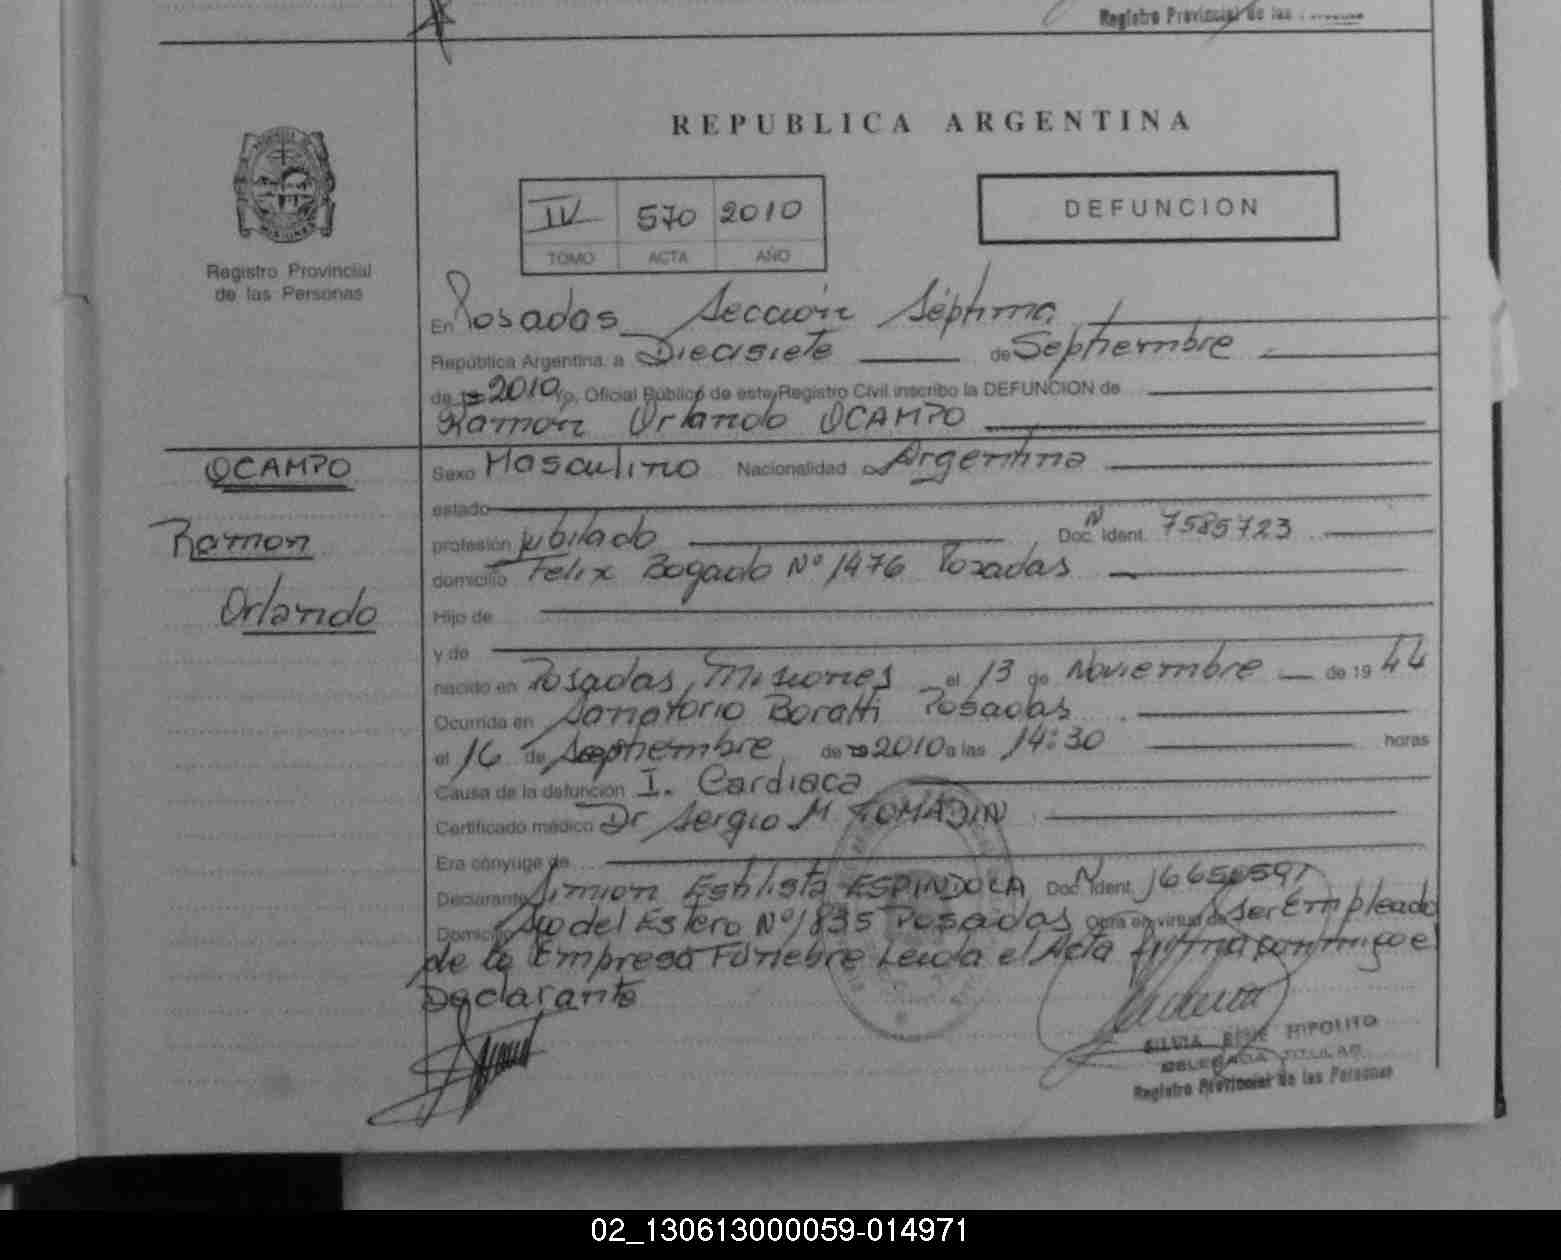 Registro Provincial de las
REPUBLICA ARGENTINA
IV 570 2010
TOMO ACTA AÑO
DEFUNCION
Registro Provincial
de las Personas
En Posadas Sección Séptima
República Argentina, a Diecisiete de Septiembre
de 19 2010 Yo, Oficial Público de este Registro Civil inscribo la DEFUNCION de
Ramón Orlando OCAMPO
OCAMPO
Ramon
Orlando
Sexo Masculino Nacionalidad Argentina
estado
profesión jubilado Doc. N Ident. 7585723
domicilio Felix Bogado Nº 1476 Posadas
Hijo de
y de
nacido en Posadas, Misiones el 13 de Noviembre de 19 44
Ocurrida en Sanatorio Boratti Posadas
el 16 de Septiembre de 19 2010 a las 14:30 horas
Causa de la defunción I. Cardiaca
Certificado médico Dr Sergio M TOMADIN
Era cónyuge de
Declarante Simion Estilista ESPINDOLA Doc. N Ident. 16650591
Domicilio Sgo del Estero Nº 1835 Posadas Obra en virtud de ser Empleado
de la Empresa Fúnebre Leida el Acta firma conmigo el
Declarante
SILVIA HIPOLITO
DELEGADA TITULAR
Registro Provincial de las Personas
02_130613000059-014971